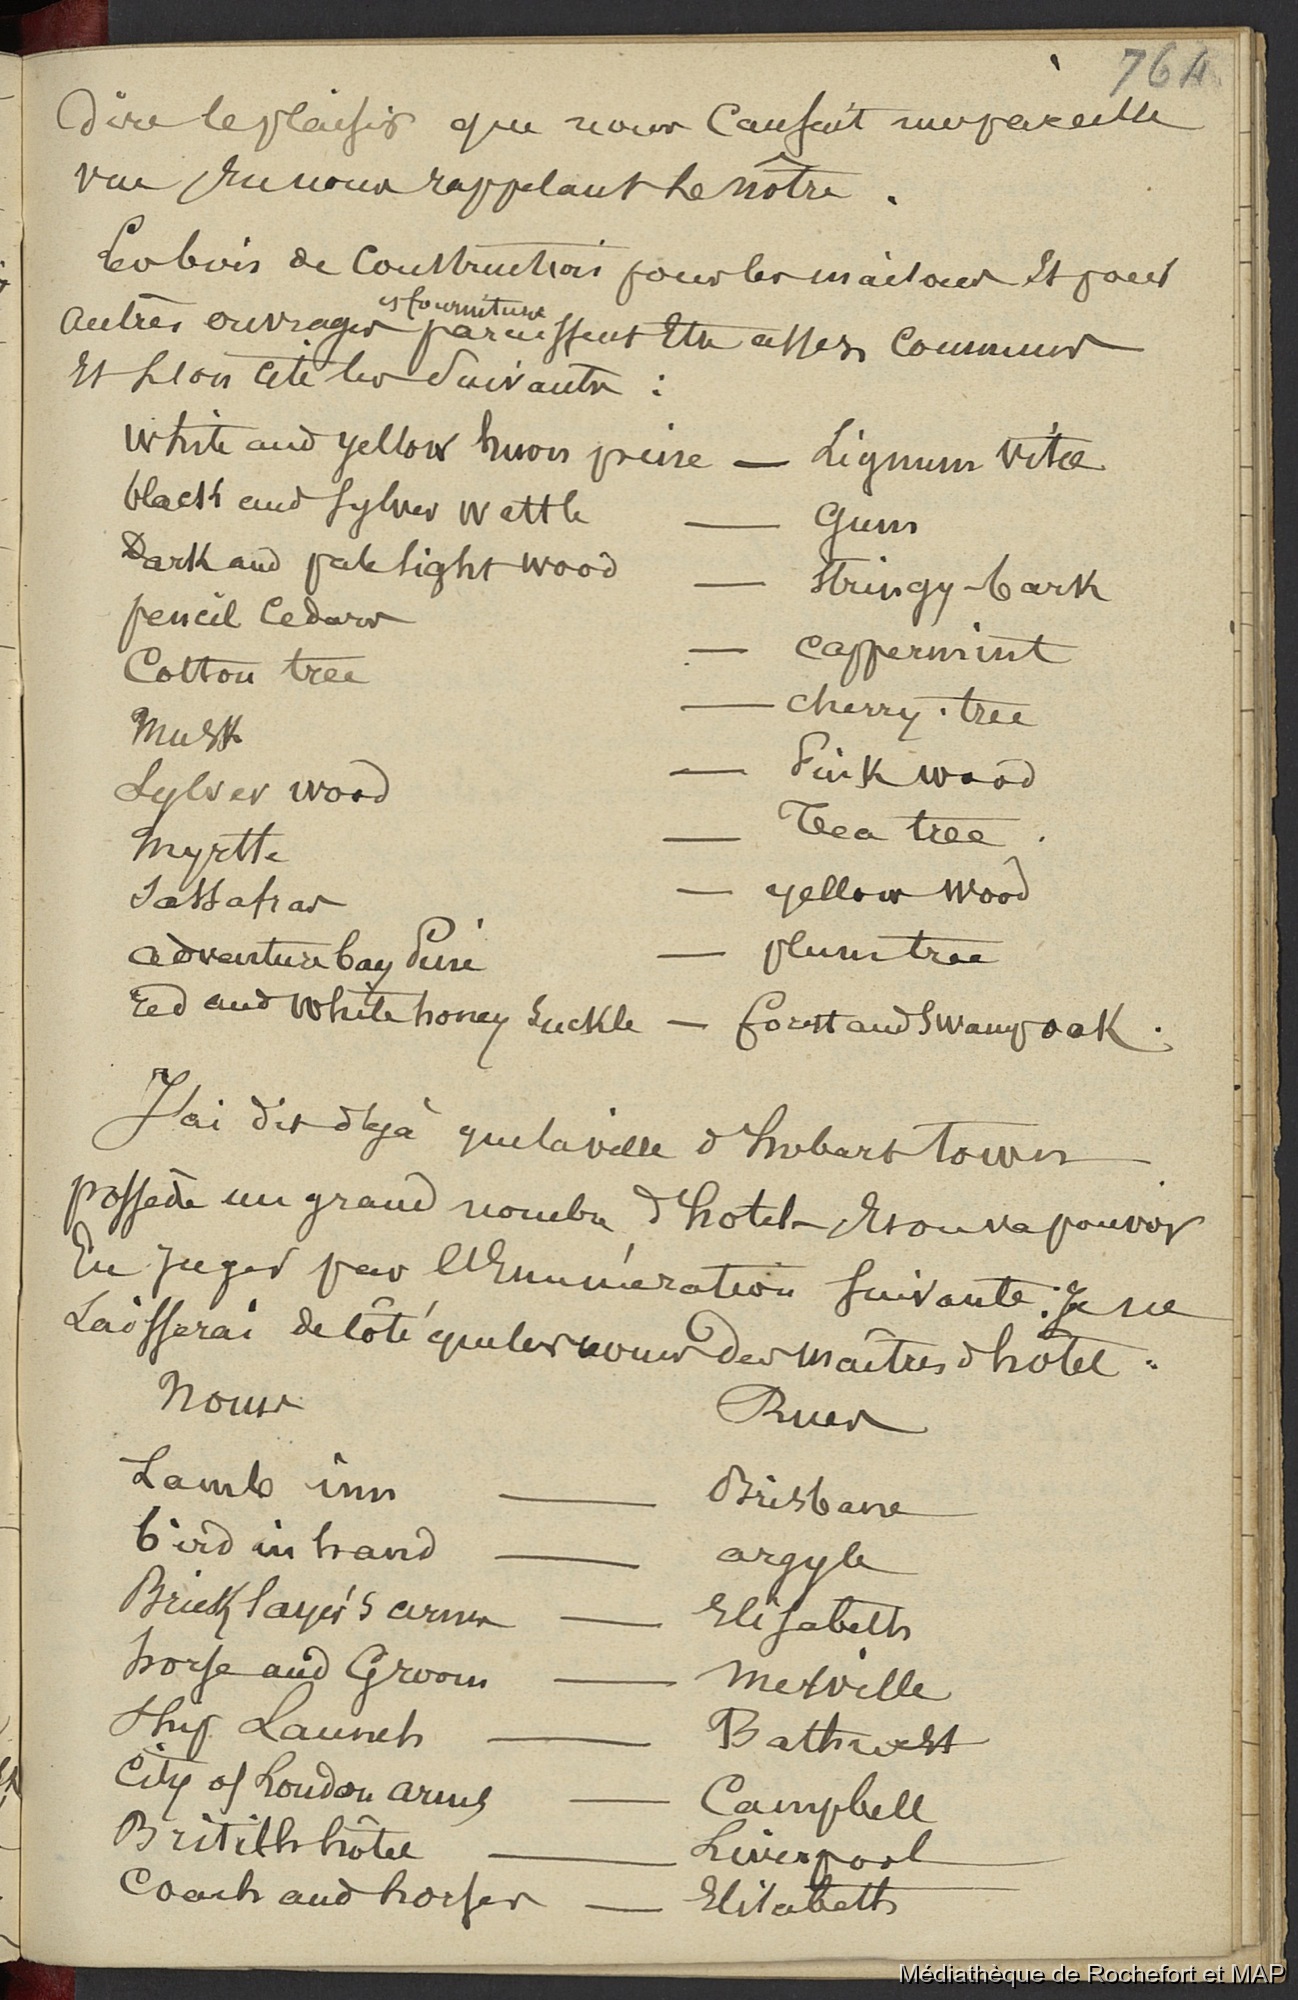 764
dire le plaisir que nous causait une pareille
vue en nous rappelant le nôtre.
Les bois de construction pour les maisons et pour
autres ouvrages et fourniture paraissent etre assez communs
et l'on cite les suivants :
white and yellow huon pine — Lignum vitæ
black and sylver wattle — Gum
Dark and pale light wood — Stringy-bark
pencil cedars — cappermint
Cotton tree — cherry-tree
Musk — Pink wood
Sylver wood — Tea tree.
Myrtle — yellow wood
Sassafras — plum tree
adventure bay Pine
red and white honey suckle — forest and Swamp oak.
J'ai dit déjà que la ville d'hobart town
possède un grand nombre d'hotels et on va pouvoir
en juger par l'Enumération suivante : Je ne
laisserai de côté que les noms des maîtres d'hôtel.
Noms Rues
Lamb inn — Brisbane
bird in hand — argyle
Brick layer's arms — Elisabeth
horse and Groom — Melville
Ship Launch — Bathurst
City of London arms — Campbell
British hôtel — Liverpool
Coach and horses — Elisabeth
Médiathèque de Rochefort et MAP